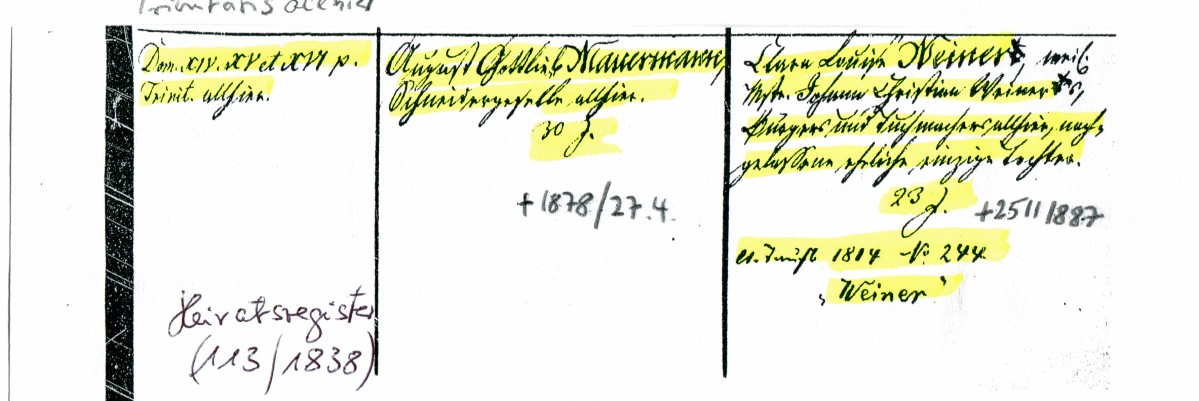 Trinitatis
Dom. XIV. XV et XVI p.
Trinit. allhier.
Heiratsregister
(113/1838)
August Gottlieb Mauermann,
Schneidergeselle allhier.
30 J.
+1878/27.4.
Clara Louise Weiner*, weil.
Mstr. Johann Christian Weiner*s,
Bürgers und Tuchmachers allhier, nach-
gelassene eheliche einzige Tochter.
23 J.
1814 No 244
"Weiner"